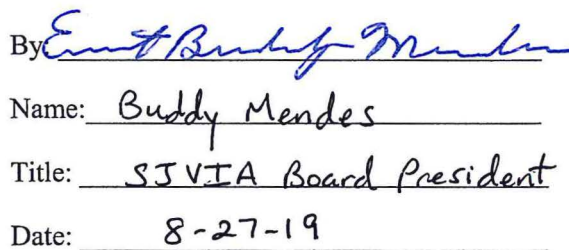 By Ernest Buddy Mendes
Name: Buddy Mendes
Title: SJVIA Board President
Date: 8-27-19